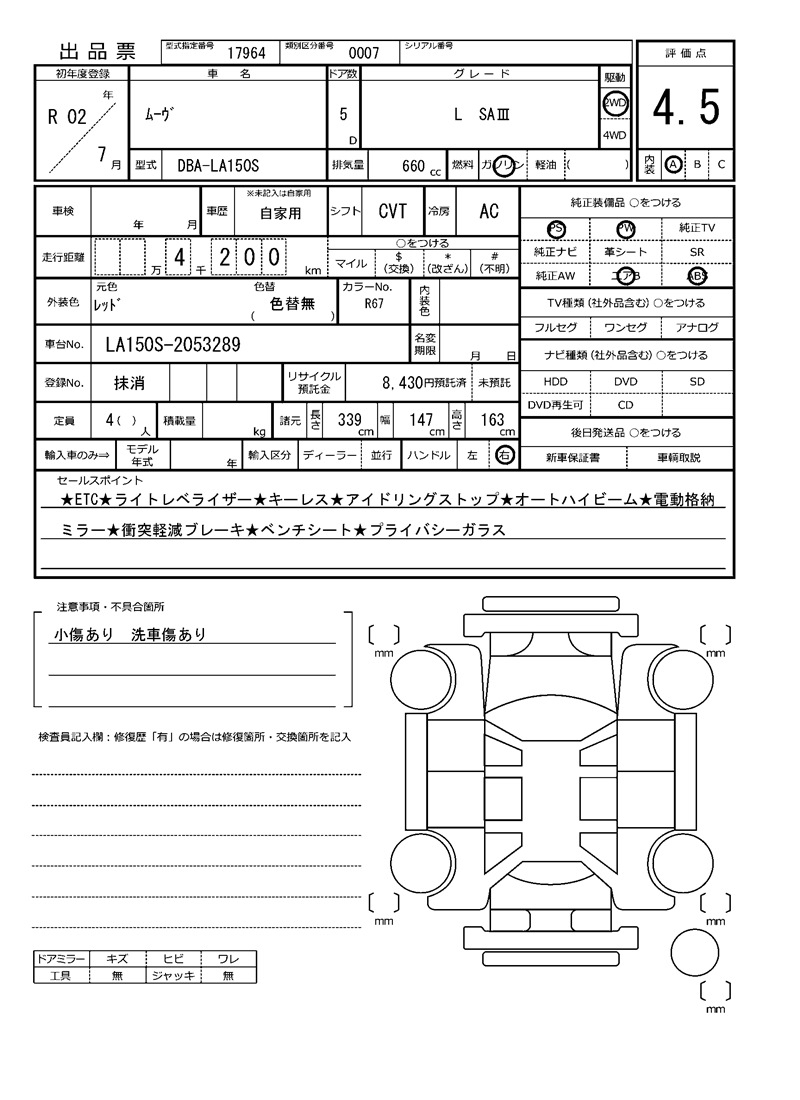 出品票 型式指定番号 17964 類別区分番号 0007 シリアル番号
評価点
4.5
内装 A B C
初年度登録 車名 ドア数 グレード 駆動
R 02 年 7 月 ムーヴ 5 D L SAⅢ 2WD 4WD
型式 DBA-LA150S 排気量 660 cc 燃料 ガソリン 軽油 ( )
車検 年 月 車歴 ※未記入は自家用 自家用 シフト CVT 冷房 AC
走行距離 万 4 千 2 0 0 km ○をつける
マイル $(交換) *(改ざん) #(不明)
外装色 元色 レッド 色替 ( 色替無 ) カラーNo. R67 内装色
車台No. LA150S-2053289 名変期限 月 日
登録No. 抹消 リサイクル預託金 8,430円預託済 未預託
定員 4( ) 人 積載量 kg 諸元 長さ 339 cm 幅 147 cm 高さ 163 cm
輸入車のみ⇒ モデル年式 年 輸入区分 ディーラー 並行 ハンドル 左 右
純正装備品 ○をつける
PS PW 純正TV
純正ナビ 革シート SR
純正AW エアB ABS
TV種類(社外品含む) ○をつける
フルセグ ワンセグ アナログ
ナビ種類(社外品含む) ○をつける
HDD DVD SD
DVD再生可 CD
後日発送品 ○をつける
新車保証書 車輌取説
セールスポイント
★ETC★ライトレベライザー★キーレス★アイドリングストップ★オートハイビーム★電動格納
ミラー★衝突軽減ブレーキ★ベンチシート★プライバシーガラス
注意事項・不具合箇所
小傷あり 洗車傷あり
検査員記入欄:修復歴「有」の場合は修復箇所・交換箇所を記入
ドアミラー キズ ヒビ ワレ
工具 無 ジャッキ 無
mm
mm
mm
mm
mm